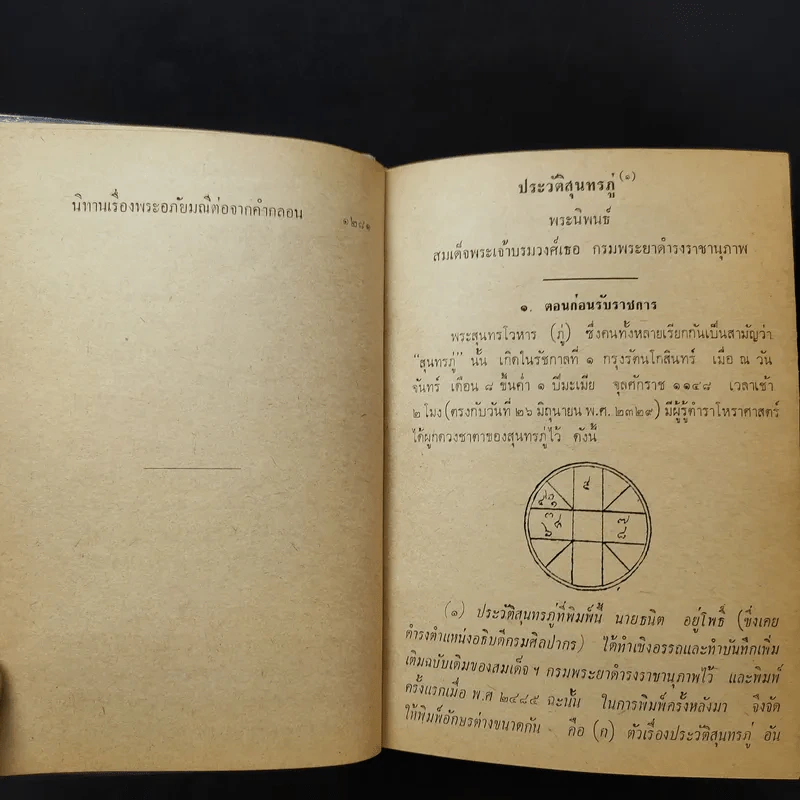 นิทานเรื่องพระอภัยมณีต่อจากคำกลอน
๑๒๘๑
ประวัติสุนทรภู่ (๑)
พระนิพนธ์
สมเด็จพระเจ้าบรมวงศ์เธอ กรมพระยาดำรงราชานุภาพ
๑. ตอนก่อนรับราชการ
พระสุนทรโวหาร (ภู่) ซึ่งคนทั้งหลายเรียกกันเป็นสามัญว่า
"สุนทรภู่" นั้น เกิดในรัชกาลที่ ๑ กรุงรัตนโกสินทร์ เมื่อ ณ วัน
จันทร์ เดือน ๘ ขึ้นค่ำ ๑ ปีมะเมีย จุลศักราช ๑๑๔๘ เวลาเช้า
๒ โมง (ตรงกับวันที่ ๒๖ มิถุนายน พ.ศ. ๒๓๒๙) มีผู้รู้ตำราโหราศาสตร์
ได้ผูกดวงชาตาของสุนทรภู่ไว้ ดังนี้
(๑) ประวัติสุนทรภู่ที่พิมพ์นี้ นายธนิต อยู่โพธิ์ (ซึ่งเคย
ดำรงตำแหน่งอธิบดีกรมศิลปากร) ได้ทำเชิงอรรถและทำบันทึกเพิ่ม
เติมฉบับเดิมของสมเด็จ ฯ กรมพระยาดำรงราชานุภาพไว้ และพิมพ์
ครั้งแรกเมื่อ พ.ศ ๒๔๘๕ ฉะนั้น ในการพิมพ์ครั้งหลังมา จึงจัด
ให้พิมพ์อักษรต่างขนาดกัน คือ (ก) ตัวเรื่องประวัติสุนทรภู่ อัน